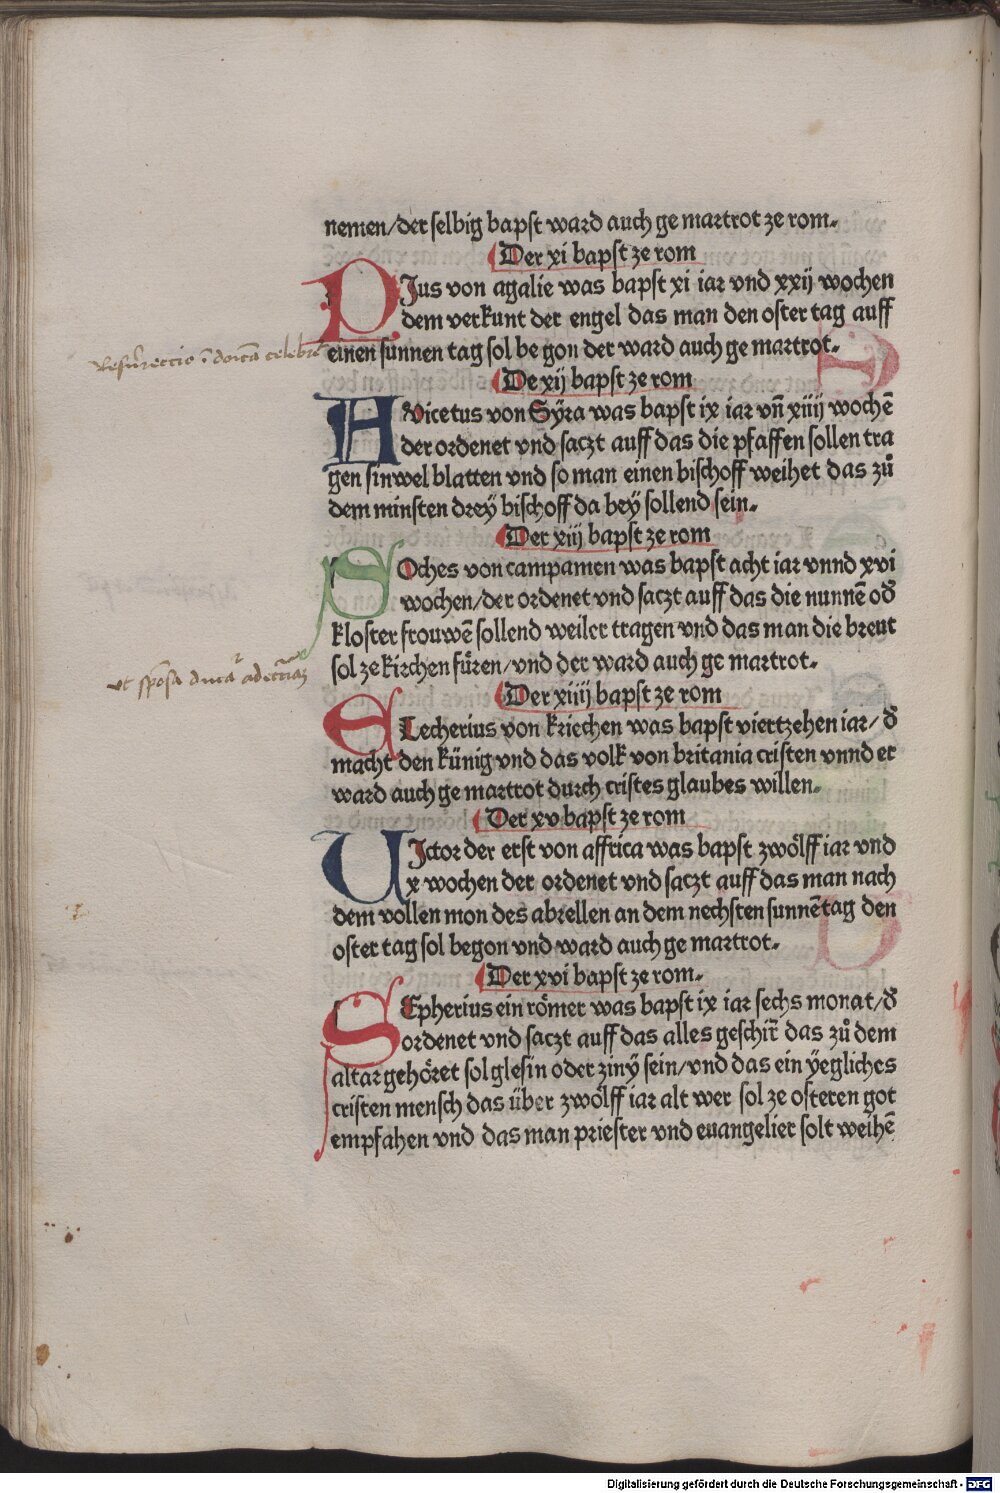 nemen/der selbig bapst ward auch ge martrot ze rom.
Der xi bapst ze rom
PIus von agalie was bapst xi iar vnd xxij wochen
dem verkunt der engel das man den oster tag auff
einen sunnen tag sol be gon der ward auch ge martrot.
De xij bapst ze rom
ANicetus von Sÿra was bapst ix iar vñ xiiij wochē
der ordenet vnd saczt auff das die pfaffen sollen tra
gen sinwel blatten vnd so man einen bischoff weihet das zů
dem minsten dreÿ bischoff da beÿ sollend sein.
Der xiij bapst ze rom
SOches von campamen was bapst acht iar vnnd xvi
wochen/der ordenet vnd saczt auff das die nunnē od̕
kloster frouwē sollend weiler tragen vnd das man die breut
sol ze kirchen füren/vnd der ward auch ge martrot.
Der xiiij bapst ze rom
ELecherius von kriechen was bapst viertzehen iar/d̕
macht den künig vnd das volk von britania cristen vnnd er
ward auch ge martrot durch cristes glaubes willen.
Der xv bapst ze rom
VIctor der erst von affrica was bapst zwölff iar vnd
x wochen der ordenet vnd saczt auff das man nach
dem vollen mon des abrellen an dem nechsten sunnē tag den
oster tag sol begon vnd ward auch ge martrot.
Der xvi bapst ze rom.
SEpherius ein römer was bapst ix iar sechs monat/d̕
ordenet vnd saczt auff das alles geschir̄ das zů dem
altar gehöret sol glesin oder zinÿ sein/vnd das ein ÿegliches
cristen mensch das über zwölff iar alt wer sol ze osteren got
empfahen vnd das man priester vnd euangelier solt weihē
Resurreccio
ut sponsa
Digitalisierung gefördert durch die Deutsche Forschungsgemeinschaft - DFG